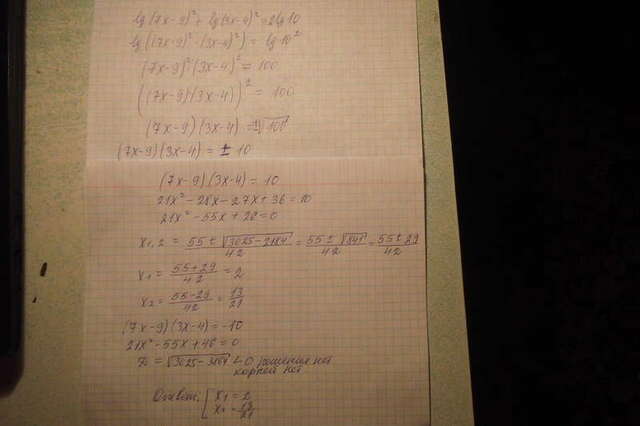 lg(7x-9)² + lg(3x-4)² = 2lg10
lg((7x-9)²·(3x-4)²) = lg10²
(7x-9)²(3x-4)² = 100
((7x-9)(3x-4))² = 100
(7x-9)(3x-4) = ±√100
(7x-9)(3x-4) = ± 10
(7x-9)(3x-4) = 10
21x² - 28x - 27x + 36 = 10
21x² - 55x + 26 = 0
x₁,₂ = (55 ± √(3025-2184))/42 = (55 ± √841)/42 = (55 ± 29)/42
x₁ = (55+29)/42 = 2
x₂ = (55-29)/42 = 13/21
(7x-9)(3x-4) = -10
21x² - 55x + 46 = 0
D = √(3025-3864) < 0 решения нет
корней нет
Ответ: [ x₁ = 2
x₂ = 13/21